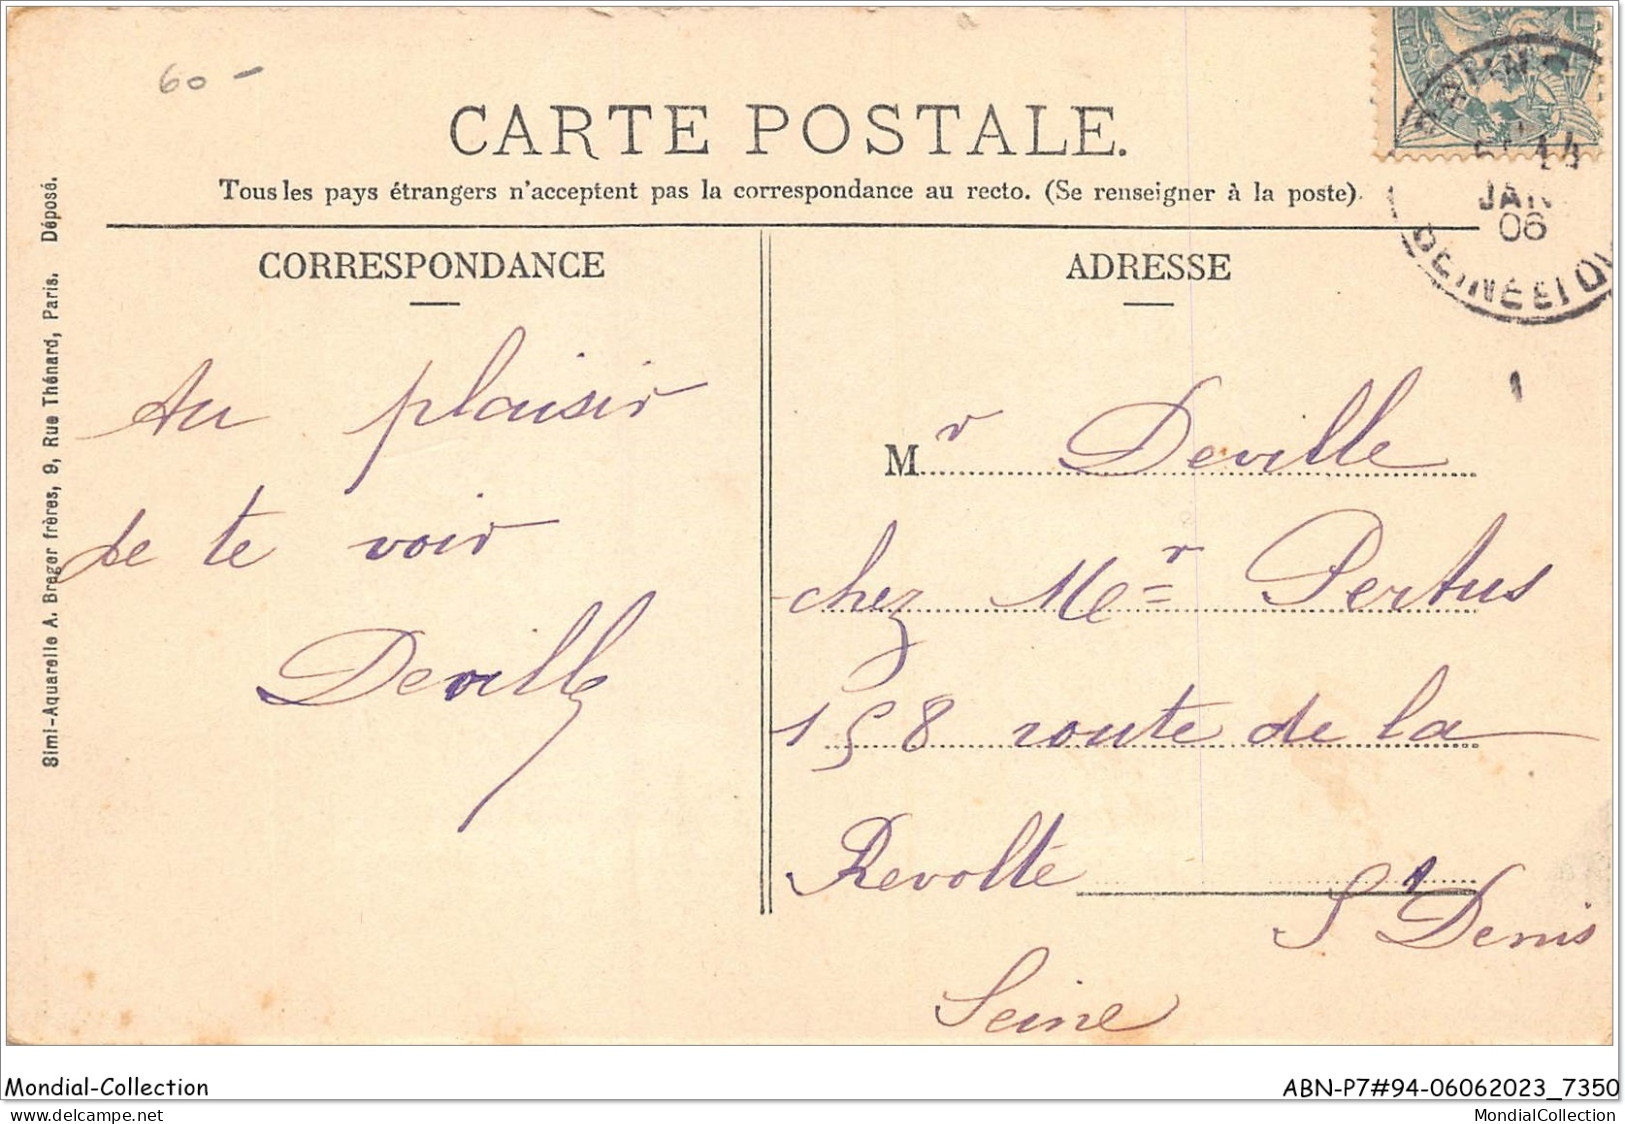 60 -
CARTE POSTALE.
Tous les pays étrangers n'acceptent pas la correspondance au recto. (Se renseigner à la poste).
CORRESPONDANCE
Au plaisir
de te voir
Deville
ADRESSE
Mr Deville
chez Mr Pertus
158 route de la
Revolte
St Denis
Seine
JANV
06
Simi-Aquarelle A. Breger frères, 9, Rue Thénard, Paris. Déposé.
Mondial-Collection
ABN-P7#94-06062023_7350
MondialCollection